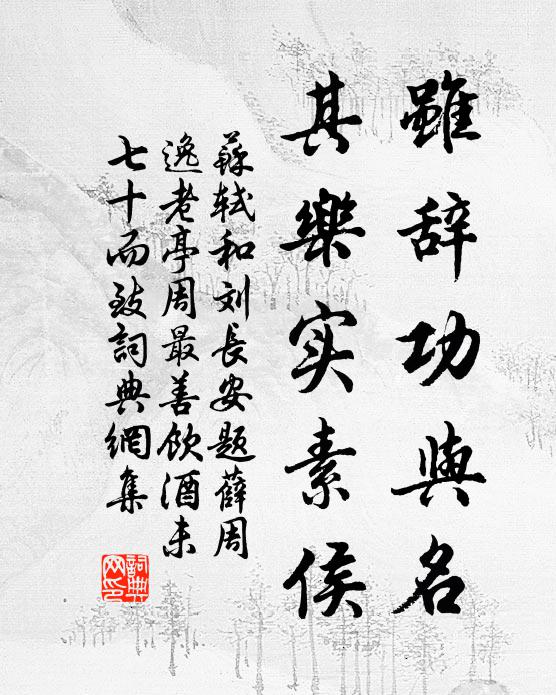 雖辞功與名
其樂实素侯
蘇轼和刘長安题薛周
逸老亭周最善飲酒未
七十而致詞典網集
詞典
网印